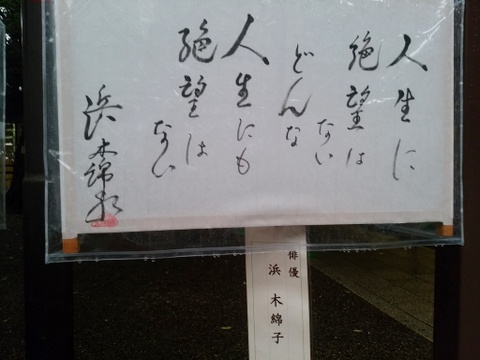 人生に
絶望は
ない
どんな
人生にも
絶望は
ない
浜木綿子
俳優
浜木綿子